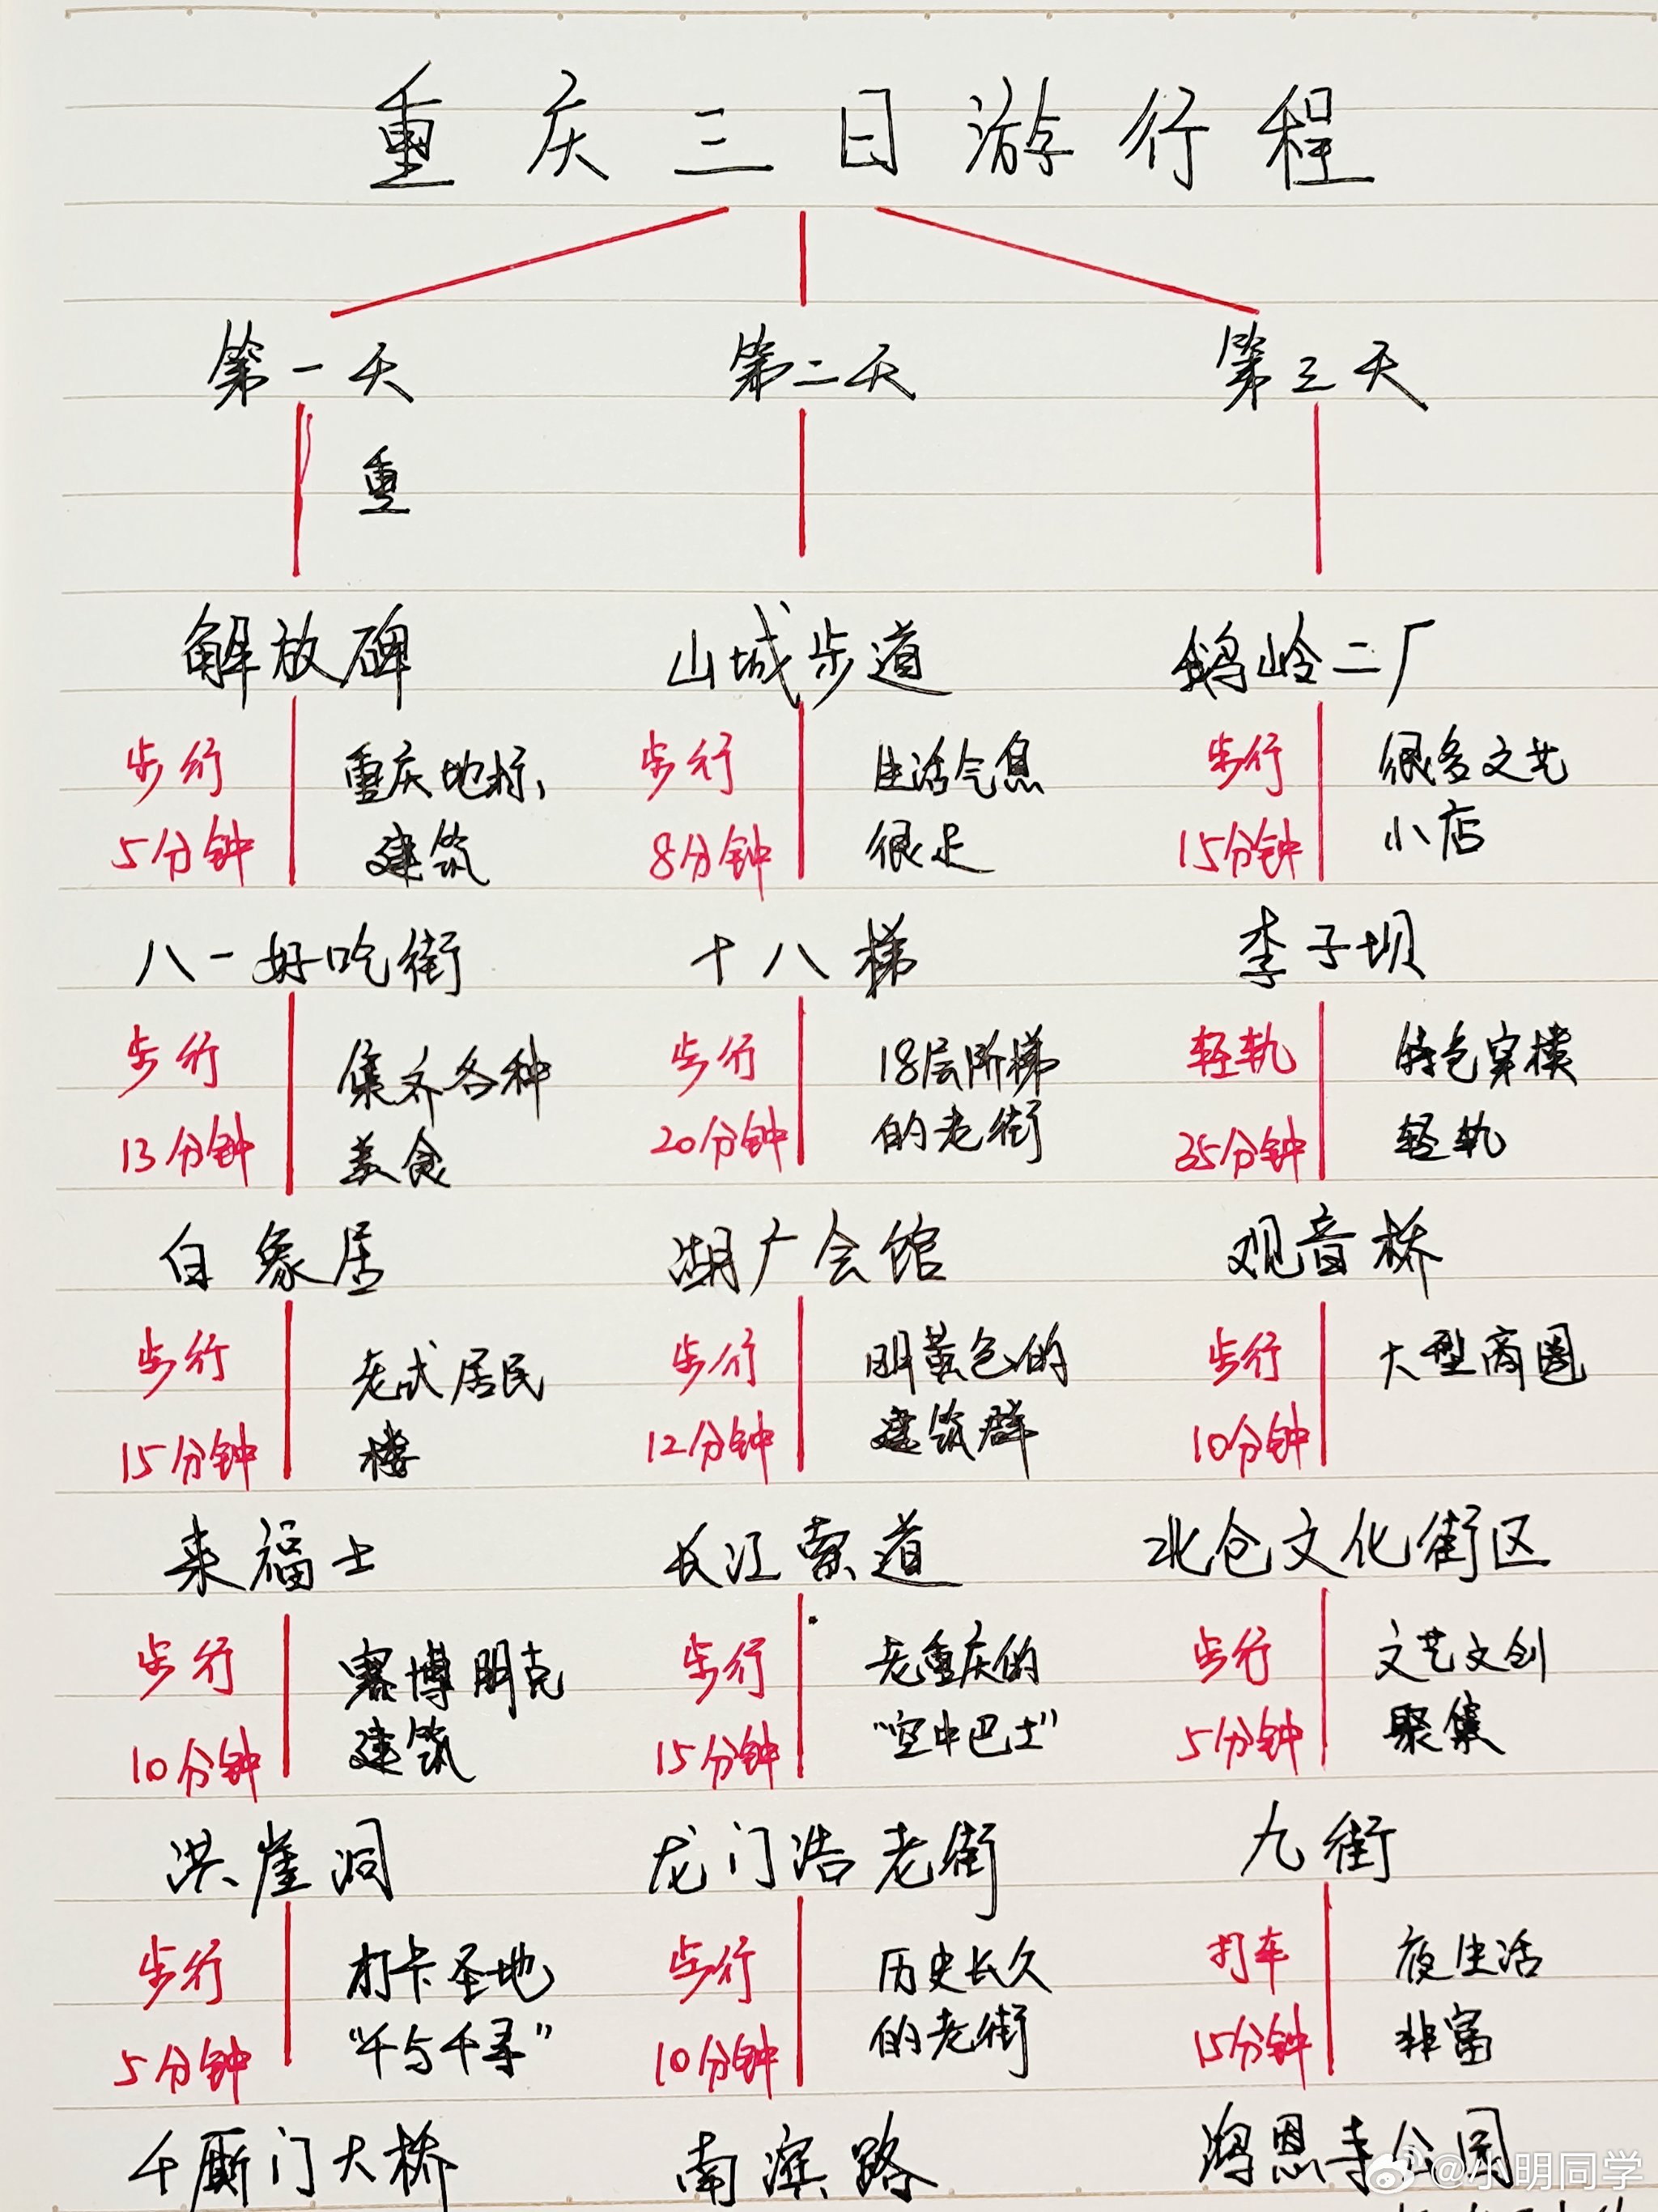 重庆三日游行程
第一天
重
解放碑
步行
5分钟
重庆地标、
建筑
八一好吃街
步行
13分钟
集齐各种
美食
白象居
步行
15分钟
老式居民
楼
来福士
步行
10分钟
赛博朋克
建筑
洪崖洞
步行
5分钟
打卡圣地
“千与千寻”
千厮门大桥
第二天
山城步道
步行
8分钟
生活气息
很足
十八梯
步行
20分钟
18层阶梯
的老街
湖广会馆
步行
12分钟
明黄色的
建筑群
长江索道
步行
15分钟
老重庆的
“空中巴士”
龙门浩老街
步行
10分钟
历史长久
的老街
南滨路
第三天
鹅岭二厂
步行
15分钟
很多文艺
小店
李子坝
轻轨
35分钟
特色穿楼
轻轨
观音桥
步行
10分钟
大型商圈
北仓文化街区
步行
5分钟
文艺文创
聚集
九街
打车
15分钟
夜生活
非富
鸿恩寺公园
@小明同学